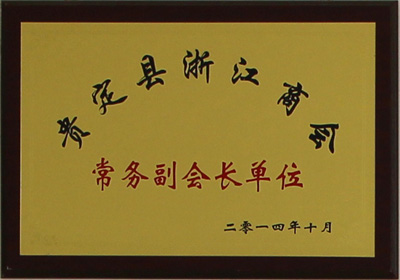 贵定县浙江商会
常务副会长单位
二零一四年十月